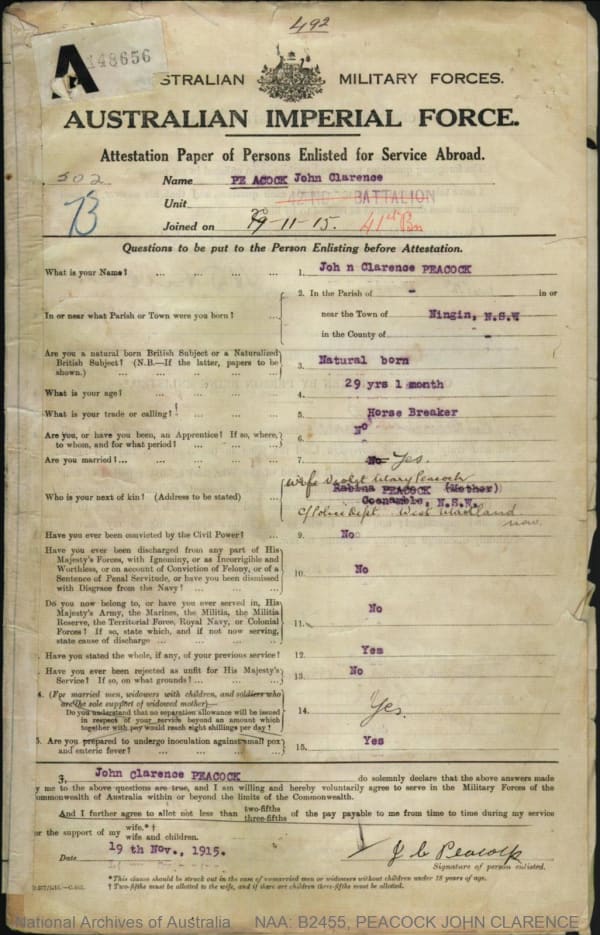 492
A 148656
AUSTRALIAN MILITARY FORCES.
AUSTRALIAN IMPERIAL FORCE.
Attestation Paper of Persons Enlisted for Service Abroad.
502
B
Name PE ACOCK John Clarence
Unit 42ND BATTALION
Joined on 19-11-15. 41st Bn
Questions to be put to the Person Enlisting before Attestation.
What is your Name? ... ... ... ... 1. Joh n Clarence PEACOCK
In or near what Parish or Town were you born? ... ... 2. In the Parish of - in or
near the Town of Ningin, N.S.W
in the County of
Are you a natural born British Subject or a Naturalized
British Subject? (N.B.—If the latter, papers to be
shown.) ... ... ... ... ... 3. Natural born
What is your age? ... ... ... ... 4. 29 yrs 1 month
What is your trade or calling? ... ... ... 5. Horse Breaker
Are you, or have you been, an Apprentice? If so, where,
to whom, and for what period? ... ... ... 6. No
Are you married? ... ... ... ... ... 7. No Yes.
Who is your next of kin? (Address to be stated) ... 8. Wife Violet Mary Peacock
Rabina PEACOCK (Mother)
Coonamble, N.S.W.
C/Police Dept. West Maitland
now
Have you ever been convicted by the Civil Power? ... 9. No
Have you ever been discharged from any part of His
Majesty's Forces, with Ignominy, or as Incorrigible and
Worthless, or on account of Conviction of Felony, or of a
Sentence of Penal Servitude, or have you been dismissed
with Disgrace from the Navy? ... ... ... 10. No
Do you now belong to, or have you ever served in, His
Majesty's Army, the Marines, the Militia, the Militia
Reserve, the Territorial Force, Royal Navy, or Colonial
Forces? If so, state which, and if not now serving,
state cause of discharge ... ... ... ... 11. No
Have you stated the whole, if any, of your previous service? 12. Yes
Have you ever been rejected as unfit for His Majesty's
Service? If so, on what grounds? ... ... ... 13. No
4. (For married men, widowers with children, and soldiers who
are the sole support of widowed mother)—
Do you understand that no separation allowance will be issued
in respect of your service beyond an amount which
together with pay would reach eight shillings per day? 14. Yes.
5. Are you prepared to undergo inoculation against small pox
and enteric fever? ... ... ... ... 15. Yes
I, John Clarence PEACOCK do solemnly declare that the above answers made
y me to the above questions are true, and I am willing and hereby voluntarily agree to serve in the Military Forces of the
ommonwealth of Australia within or beyond the limits of the Commonwealth.
And I further agree to allot not less than two-fifths three-fifths of the pay payable to me from time to time during my service
or the support of my wife.*† wife and children.
Date 19 th Nov., 1915. J C Peacock
Signature of person enlisted.
*This clause should be struck out in the case of unmarried men or widowers without children under 18 years of age.
† Two-fifths must be allotted to the wife, and if there are children three-fifths must be allotted.
National Archives of Australia NAA: B2455, PEACOCK JOHN CLARENCE